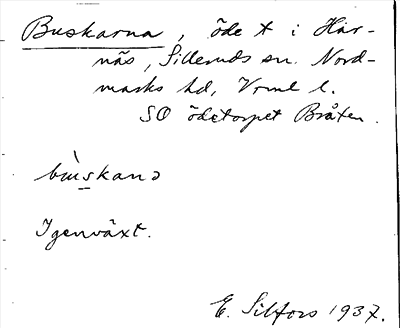 Buskarna, öde t i Här-
näs, Silleruds sn. Nord-
marks hd, Vrml l.
SO ödetorpet Bråten.
bùskanə
Igenväxt.
E. Silfors 1937.